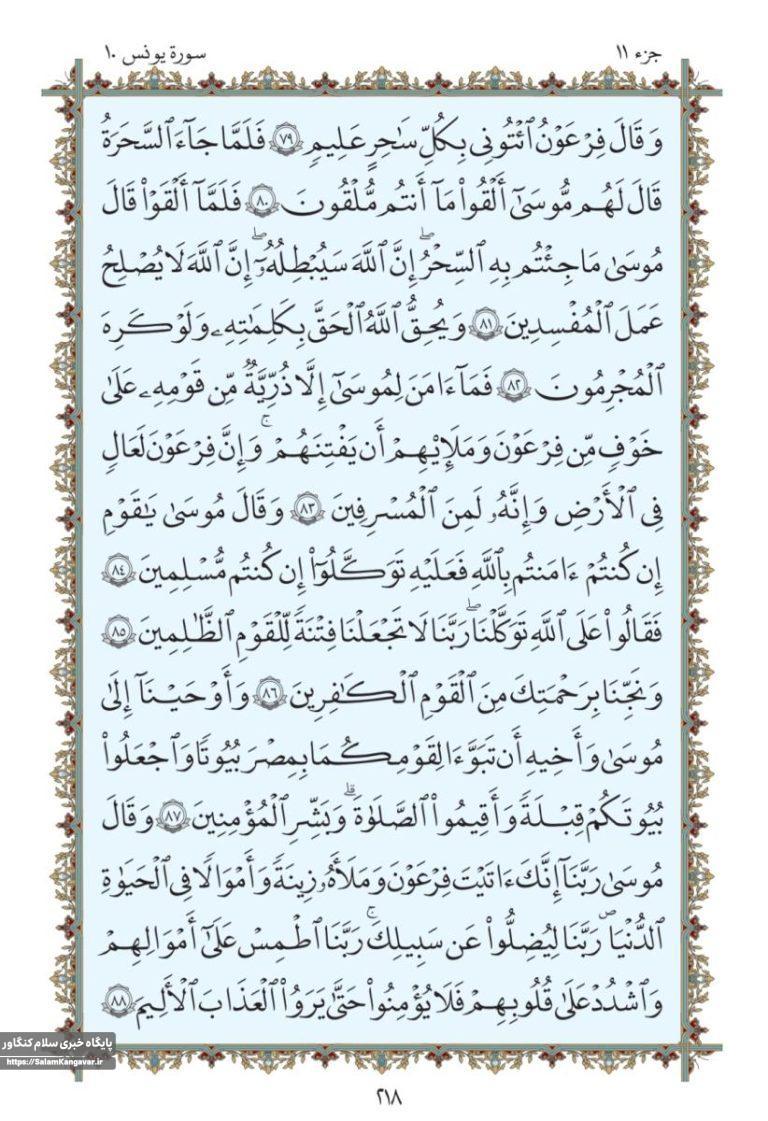 جزء ١١
سورة يونس ١٠
وَقَالَ فِرْعَوْنُ ٱئْتُونِي بِكُلِّ سَٰحِرٍ عَلِيمٍ ٧٩ فَلَمَّا جَآءَ ٱلسَّحَرَةُ
قَالَ لَهُم مُّوسَىٰٓ أَلْقُوا۟ مَآ أَنتُم مُّلْقُونَ ٨٠ فَلَمَّآ أَلْقَوْا۟ قَالَ
مُوسَىٰ مَا جِئْتُم بِهِ ٱلسِّحْرُۖ إِنَّ ٱللَّهَ سَيُبْطِلُهُۥٓۖ إِنَّ ٱللَّهَ لَا يُصْلِحُ
عَمَلَ ٱلْمُفْسِدِينَ ٨١ وَيُحِقُّ ٱللَّهُ ٱلْحَقَّ بِكَلِمَٰتِهِۦ وَلَوْ كَرِهَ
ٱلْمُجْرِمُونَ ٨٢ فَمَآ ءَامَنَ لِمُوسَىٰٓ إِلَّا ذُرِّيَّةٌ مِّن قَوْمِهِۦ عَلَىٰ
خَوْفٍ مِّن فِرْعَوْنَ وَمَلَإِيْهِمْ أَن يَفْتِنَهُمْۚ وَإِنَّ فِرْعَوْنَ لَعَالٍ
فِي ٱلْأَرْضِ وَإِنَّهُۥ لَمِنَ ٱلْمُسْرِفِينَ ٨٣ وَقَالَ مُوسَىٰ يَٰقَوْمِ
إِن كُنتُمْ ءَامَنتُم بِٱللَّهِ فَعَلَيْهِ تَوَكَّلُوٓا۟ إِن كُنتُم مُّسْلِمِينَ ٨٤
فَقَالُوا۟ عَلَى ٱللَّهِ تَوَكَّلْنَاۖ رَبَّنَا لَا تَجْعَلْنَا فِتْنَةً لِّلْقَوْمِ ٱلظَّٰلِمِينَ ٨٥
وَنَجِّنَا بِرَحْمَتِكَ مِنَ ٱلْقَوْمِ ٱلْكَٰفِرِينَ ٨٦ وَأَوْحَيْنَآ إِلَىٰ
مُوسَىٰ وَأَخِيهِ أَن تَبَوَّءَا لِقَوْمِكُمَا بِمِصْرَ بُيُوتًا وَٱجْعَلُوا۟
بُيُوتَكُمْ قِبْلَةً وَأَقِيمُوا۟ ٱلصَّلَوٰةَۗ وَبَشِّرِ ٱلْمُؤْمِنِينَ ٨٧ وَقَالَ
مُوسَىٰ رَبَّنَآ إِنَّكَ ءَاتَيْتَ فِرْعَوْنَ وَمَلَأَهُۥ زِينَةً وَأَمْوَٰلًا فِي ٱلْحَيَوٰةِ
ٱلدُّنْيَا رَبَّنَا لِيُضِلُّوا۟ عَن سَبِيلِكَۖ رَبَّنَا ٱطْمِسْ عَلَىٰٓ أَمْوَٰلِهِمْ
وَٱشْدُدْ عَلَىٰ قُلُوبِهِمْ فَلَا يُؤْمِنُوا۟ حَتَّىٰ يَرَوُا۟ ٱلْعَذَابَ ٱلْأَلِيمَ ٨٨
پایگاه خبری سلام کنگاور
https://SalamKangavar.ir
٢١٨